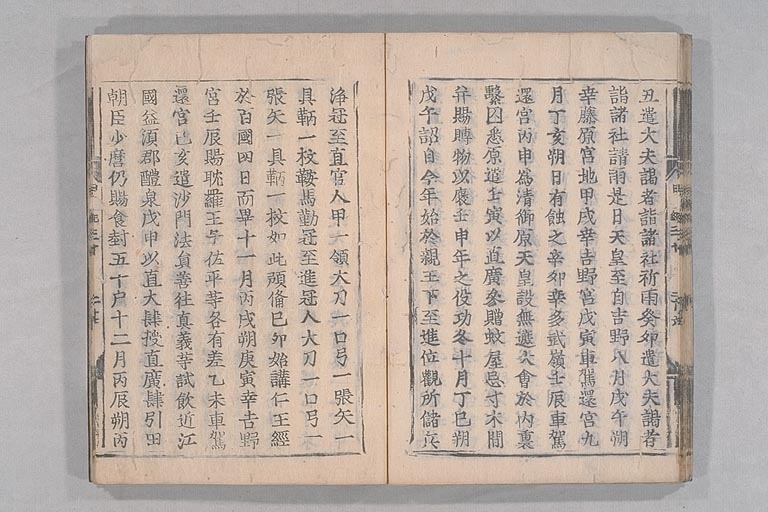 丑遣大夫謁者詣諸社祈雨癸卯遣大夫謁者
詣諸社請雨是日天皇至自吉野八月戊午朔
幸藤原宮地甲戌幸吉野宮戊寅車駕還宮九
月丁亥朔日有蝕之辛卯幸多武嶺壬辰車駕
還宮丙申為清御原天皇設無遮大會於内裏
繫囚悉原遣壬寅以直廣参贈蚊屋忌寸木間
并賜賻物以褒壬申年之役功冬十月丁巳朔
戊午詔自今年始於親王下至進位觀所儲兵
浄冠至直官人甲一領大刀一口弓一張矢一
具鞆一枚鞍馬勤冠至進冠人大刀一口弓一
張矢一具鞆一枚如此預備己卯始講仁王經
於百國四日而畢十一月丙戌朔庚寅幸吉野
宮壬辰賜耽羅王子佐平等各有差乙未車駕
還宮己亥遣沙門法員善往真義等試飲近江
國益須郡醴泉戊申以直大肆授直廣肆引田
朝臣少麿仍賜食封五十戸十二月丙辰朔丙